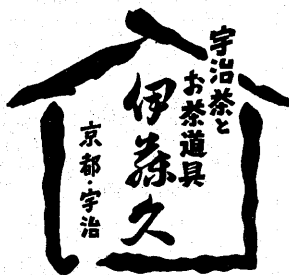 宇治茶と
お茶道具
伊藤久
京都・宇治